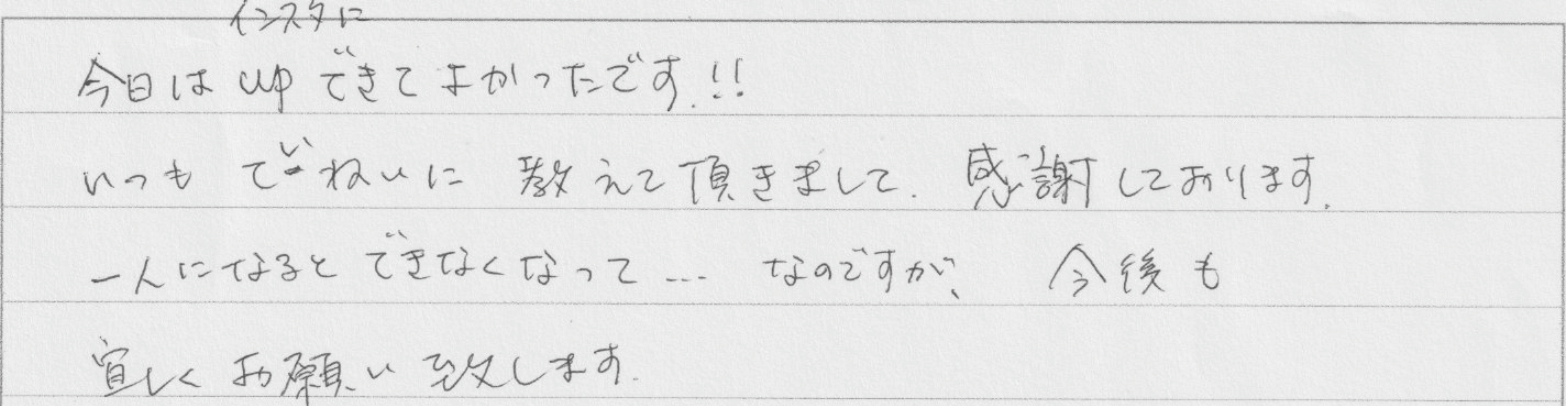 インスタに
今日は upできてよかったです!!
いつも でいねいに 教えて頂きまして、感謝しております。
一人になると できなくなって… なのですが、 今後も
宜しく お願い致します。